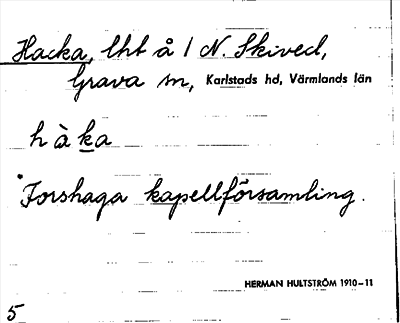 Hacka, lht å 1 N. Skived,
Grava sn, Karlstads hd, Värmlands län
hàka
Forshaga kapellförsamling.
HERMAN HULTSTRÖM 1910-11
5